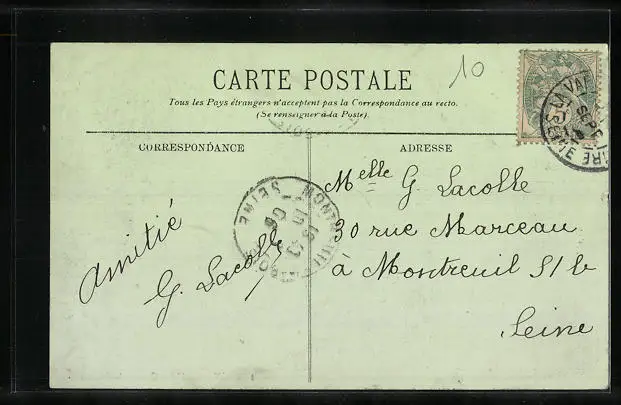 10
CARTE POSTALE
Tous les Pays étrangers n'acceptent pas la Correspondance au recto.
(Se renseigner à la Poste)
CORRESPONDANCE
ADRESSE
Amitié
G. Lacolle
Melle G. Lacolle
30 rue Marceau
à Montreuil S/ b
Seine
SEINE